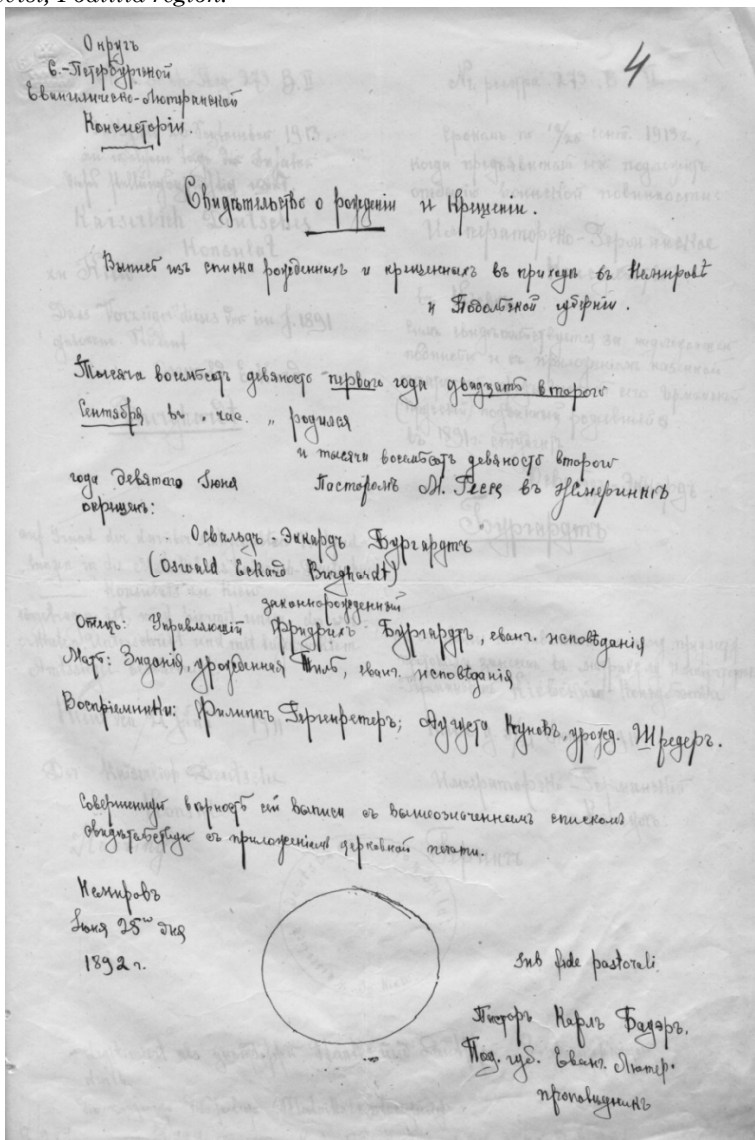 region.
4
Округъ
С.-Петербургской
Евангелическо-Лютеранской
Консисторіи.
Свидѣтельство о рожденіи и крещеніи.
Выпись изъ списка рожденныхъ и крещенныхъ въ приходѣ въ Немировѣ
и Подольской губерніи.
Тысяча восемьсотъ девяносто перваго года двадцать второго
Сентября въ . час. „ родился
и тысяча восемьсотъ девяносто второго
года девятаго Іюня Пасторомъ въ Жмеринкѣ
окрещенъ:
Освальдъ-Эккардъ Бургардтъ
(Oswald Eckard Burghardt)
законнорожденный
Отецъ: Управляющій Фридрихъ Бургардтъ, еванг. исповѣданія
Мать: Зидонія, урожденная Тиль, еванг. исповѣданія
Воспріемники: Филиппъ; Августа Куновъ, урожд. Шредеръ.
Совершенную вѣрность сей выписи съ вышеозначеннымъ спискомъ
свидѣтельствую съ приложеніемъ церковной печати.
Немировъ
Іюня 25го дня
1892 г.
Sub fide pastorali.
Пасторъ Карлъ Бадэръ.
Под. губ. Еванг. Лютер.
проповѣдникъ